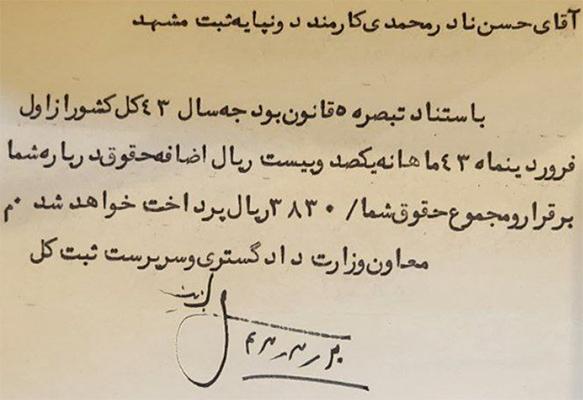 آقای حسن نادر محمدی کارمند دونپایه ثبت مشهد
باستناد تبصره ۵ قانون بودجه سال ۴۳ کل کشور از اول
فروردینماه ۴۳ ماهانه یکصد و بیست ریال اضافه حقوق درباره شما
برقرار و مجموع حقوق شما / ۳۸۳۰ ریال پرداخت خواهد شد م
معاون وزارت دادگستری و سرپرست ثبت کل